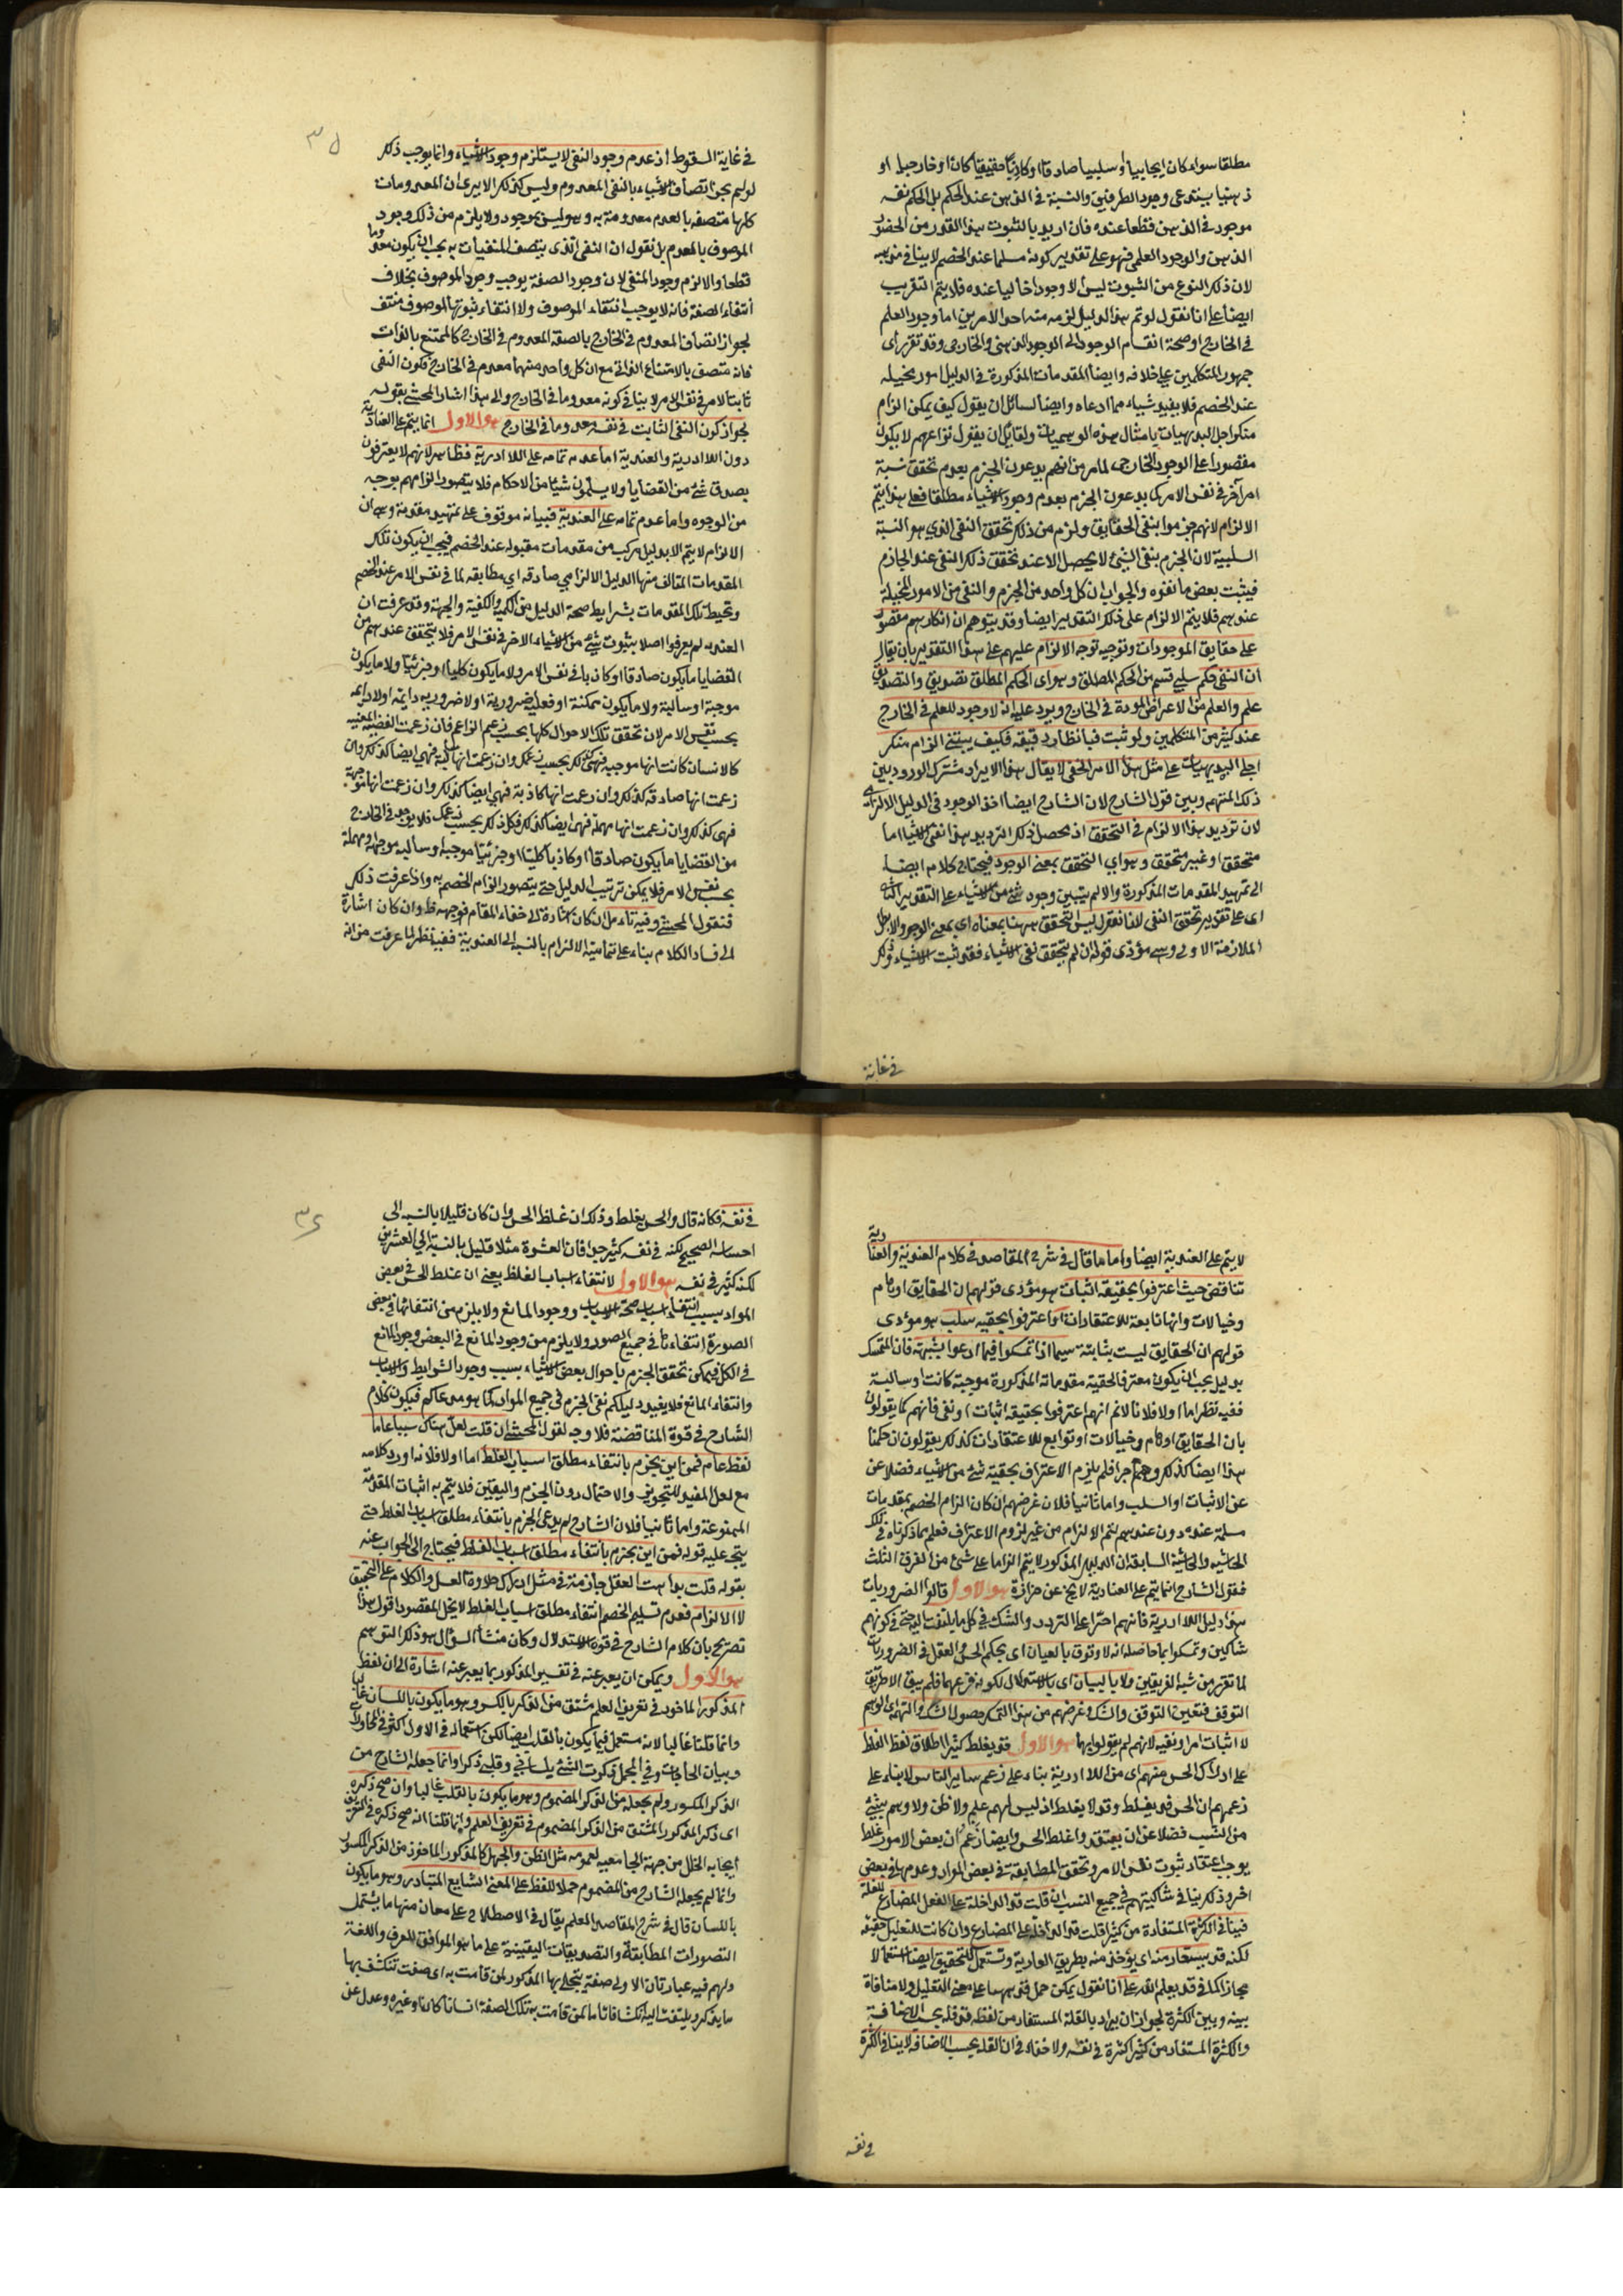 مطلقا سواء كان ايجابيا او سلبيا صادقا او كاذبا حقيقيا كان او خارجيا او
ذهنيا يستدعى وجود الطرفين والنسبة فى الذهن عند الحكم بل الحكم نفسه
موجود فى الذهن قطعا عنده فان اريد بالثبوت هذا القدر من الحضور
الذهن والوجود العلمى فهو على تقدير كونه مسلما عند الخصم لا ينافى مذهبه
لان ذلك النوع من الثبوت ليس الا وجودا خياليا عنده فلا يتم التقريب
ايضا على انا نقول لو تم هذا الدليل لزمه منه احد الامرين اما وجود العلم
فى الخارج او صحة انقسام الوجود الى الوجود الذهنى والخارجى وقد تقرر رأى
جمهور المتكلمين على خلافه وايضا المقدمات المذكورة فى الدليل امور مخيله
عند الخصم فلا يفيد شيئا مما ادعاه وايضا لسائل ان يقول كيف يمكن الزام
منكر اجل البديهيات بامثال هذه الوهميات ولقايل ان يقول نزاعهم لا يكون
مقصورا على الوجود الخارجى لما مر من انهم يدعون الجزم بعدم تحقق نسبة
امر آخر فى نفس الامر كما يدعون الجزم بعدم وجود الاشياء مطلقا فعلى هذا يتم
الالزام لانهم جزموا بنفى الحقايق ولزم من ذلك تحقق النفى الذى هو النسبة
السلبية لان الجزم بنفى الشئ لا يحصل الا عند تحقق ذلك النفى عند الجازم
فيثبت بعض ما نفوه والجواب ان كل واحد من الجزم والنفى من الامور المخيلة
عندهم فلا يتم الالزام على ذلك التقدير ايضا وقد يتوهم ان انكارهم مقصور
على حقايق الموجودات وتوجيه توجه الالزام عليهم على هذا التقدير بان يقال
ان النفى حكم سلبى قسم من الحكم المطلق وهو اى الحكم المطلق تصديق والتصديق
علم والعلم من الاعراض الموجودة فى الخارج ويرد عليه انه لا وجود للعلم فى الخارج
عند كثير من المتكلمين ولو ثبت فبانظار دقيقه فكيف يبتنى الزام منكر
اجلى البديهيات على مثل هذا الامر الخفى لا يقال هذا الايراد مشترك الورود بين
ذلك المتوهم وبين قول الشارح لان الشارح ايضا اخذ الوجود فى الدليل الالزامى
لان ترديد هذا الالزام فى التحقق اذ محصل ذلك الترديد هذا نفى الاشياء اما
متحقق او غير متحقق وهو اى التحقق بمعنى الوجود فيحتاج كلامه ايضا
الى تمهيد المقدمات المذكورة والا لم يتبين وجود شئ من الاشياء على التقدير الثانى
اى على تقدير تحقق النفى لانا نقول ليس التحقق ههنا بمعناه اى بمعنى الوجود والا بطل
الملازمة الاولى وهى مؤدى قوله ان لم يتحقق نفى الاشياء فقد ثبت الاشياء وذلك
فى غاية
٣٥
فى غاية السقوط اذ عدم وجود النفى لا يستلزم وجود الاشياء وانما يوجب ذلك
لو لم يجز اتصاف الاشياء بالنفى المعدوم وليس كذلك الا يرى ان المعدومات
كلها متصفه بالعدم معدومة به وهو ليس بموجود ولا يلزم من ذلك وجود
الموصوف بالعدم بل نقول ان النفى الذى يتصف المنفيات به يجب ان يكون معدوما
قطعا والا لزم وجود المنفى لان وجود الصفة يوجب وجود الموصوف بخلاف
انتفاء الصفة فانه لا يوجب انتفاء الموصوف ولا انتفاء ثبوتها لموصوف منتف
لجواز اتصاف المعدوم فى الخارج بالصفة المعدوم فى الخارج كالممتنع بالذات
فانه متصف بالامتناع الذاتى مع ان كل واحد منهما معدوم فى الخارج فكون النفى
ثابتا لامر فى نفس الامر لا ينافى كونه معدوما فى الخارج والى هذا اشار المحشى بقوله
لجواز كون النفى الثابت فى نفسه معدوما فى الخارج هو الاول انما يتم على العنادية
دون اللاادرية والعندية اما عدم تمامه على اللاادرية فظاهر لانهم لا يعترفون
بصدق شئ من القضايا ولا يسلمون شيئا من الاحكام فلا يتصور الزامهم بوجه
من الوجوه واما عدم تمامه على العندية فبيانه موقوف على تمهيد مقدمة وهى ان
الالزام لا يتم الا بدليل مركب من مقدمات مقبوله عند الخصم فيجب ان يكون تلك
المقدمات المؤلف منها الدليل الالزامى صادقه اى مطابقه لما فى نفس الامر عند الخصم
وتحيط تلك المقدمات بشرايط صحة الدليل من الكمية والكيفية والجهة وقد عرفت ان
العنديه لم يعرفوا اصلا بثبوت شئ من الاشياء الاخر فى نفس الامر فلا يتحقق عندهم من
القضايا ما يكون صادقا او كاذبا فى نفس الامر ولا ما يكون كليا او جزئيا ولا ما يكون
موجبة او سالبة ولا ما يكون ممكنة او فعليه ضروريه او لا ضروريه دايمه او لا دايمه
بحسب نفس الامر لان تحقق تلك الاحوال كلها بحسب زعم الزاعم فان زعمت القضيه المعينيه
كالانسان كانت انها موجبه فهى كذلك بحسب زعمك وان زعمت انها سالبة فهى ايضا كذلك وان
زعمت انها صادقه كذلك وان زعمت انها كاذبة فهى ايضا كذلك وان زعمت انها موجهة
فهى كذلك وان زعمت انها مهملة فهى ايضا كذلك فكل ذلك بحسب زعمك فلا يوجد فى الخارج
من القضايا ما يكون صادقا او كاذبا كليا او جزئيا موجبه او سالبه موجهة او مهملة
بحسب نفس الامر فلا يمكن ترتيب الدليل حتى يتصور الزام الخصم به واذا عرفت ذلك
فنقول المحشى وفيه تأمل ان كان اشارة الى خفاء المقام فوجهه ظ وان كان اشارة
الى فساد الكلام بناء على تمامية الالزام بالنسبه الى العندية ففيه نظر لما عرفت من انه
لا يتم على العندية ايضا واما ما قال فى شرح المقاصد فى كلام العندية والعنادية
تناقض حيث اعترفوا بحقيقة اثبات هو مؤدى قولهم ان الحقايق اوهام
وخيالات وانها تابعة للاعتقادات او اعترفوا بحقيه سلب هو مؤدى
قولهم ان الحقايق ليست بثابتة سيما اذا تمسكوا فيما ادعوا بشبهة فان المتمسك
بدليل يجب ان يكون معترفا بحقية مقدماته المذكورة موجبة كانت او سالبة
ففيه نظر اما اولا فلانا لانم انهم اعترفوا بحقيقه اثبات او نفى فانهم كما يقولون
بان الحقايق اوهام وخيالات او توابع للاعتقادات كذلك يقولون ان حكمنا
هذا ايضا كذلك وهلم جرا فلم يلزم الاعتراف بحقية شئ من الاشياء فضلا عن
عن الاثبات او السلب واما ثانيا فلان غرضهم ان كان الزام الخصم بمقدمات
مسلمة عنده دون عندهم لتم الالزام من غير لزوم الاعتراف فعلم بما ذكرناه فى تلك
الحاشيه والحاشية السابقه ان الدليل المذكور لا يتم الزاما على شئ من الفرق الثلث
فقول الشارح انما يتم على العنادية لا يخ عن حزازة هو الاول قالوا الضروريات
هذا دليل اللاادرية فانهم اصروا على التردد والشك فى كل ما يلتفت اليه حتى فى كونهم
شاكين وتمسكوا بما حاصله انه لا وثوق بالعيان اى بحكم الحس والعقل فى الضروريات
لما تقرر من شبه الفريقين ولا بالبيان اى بالاستدلال لكونه فرعهما فلم يبق الا طريق
التوقف فتعين التوقف والشك وغرضهم من هذا التمسك حصول الشك والتهمة اى الوهم
لا اثبات امر او نفيه لانهم لم يقولوا بهما هو الاول قد يغلط كثيرا اطلاق لفظ الغلط
على ادراك الحس منهم اى من اللاادرية بناء على زعم ساير الناس لا بناء على
زعمهم ان الحس قد يغلط وقد لا يغلط اذ ليس لهم علم ولا ظن ولا وهم بشئ
من النسب فضلا عن ان يعتقدوا غلط الحس وايضا زعم ان بعض الامور غلط
يوجب اعتقاد ثبوت نفس الامر وتحقق المطابقة فى بعض المواد وعدمها فى بعض
اخر وذلك ينافى شاكيتهم فى جميع النسب ان قلت قد الداخلة على الفعل المضارع للقلة
فينافى الكثرة المستفادة من كثيرا قلت قد الداخلة على المضارع وان كانت للتقليل حقيقة
لكنه قد يستعار منه اى يؤخذ منه بطريق العارية وتستعمل للتحقيق ايضا استعمالا
مجازا كما فى قد يعلم الله على انا نقول يمكن حمل قد ههنا على معنى التقليل ولا منافاة
بينه وبين الكثرة لجواز ان يراد بالقلة المستفاد من لفظه قد قله بحسب الاضافة
والكثرة المستفاد من كثيرا كثرة فى نفسه ولا خفاء فى ان القلة بحسب الاضافه لا ينافى الكثرة
فى نفسه
٣٦
فى نفسه فكانه قال والحس يغلط وذلك ان غلط الحس وان كان قليلا بالنسبه الى
احساسه الصحيح لكنه فى نفسه كثير جدا فان العشرة مثلا قليل بالنسبة الى العشرين
لكنه كثير فى نفسه هو الاول لانتفاء اسباب الغلط يعنى ان غلط الحس فى بعض
المواد بسبب انتفاء اسباب صحة الاسباب ووجود المانع ولا يلزم من انتفائها فى بعض
الصورة انتفاءها فى جميع الصور ولا يلزم من وجود المانع فى البعض وجود المانع
فى الكل فيمكن تحقق الجزم باحوال بعض الاشياء بسبب وجود الشرايط والاسباب
وانتفاء المانع فلا يفيد دليلكم نفى الجزم فى جميع المواد كما هو مدعاكم فيكون كلام
الشارح فى قوة المناقضة فلا وجه لقول المحشى ان قلت لعل هناك سببا عاما
لغلط عام فمن اين يجزم بانتفاء مطلق اسباب الغلط اما اولا فلانه اورد كلامه
مع لعل المفيد للتجويز والاحتمال دون الجزم واليقين فلا يتم به اثبات المقدمة
الممنوعة واما ثانيا فلان الشارح لم يدعى الجزم بانتفاء مطلق اسباب الغلط حتى
يتجه عليه قوله فمن اين يجزم بانتفاء مطلق اسباب الغلط فيحتاج الى الجواب عنه
بقوله قلت بداهت العقل جازمة فى مثل ادراك حلاوة العسل والكلام على التحقيق
لا الالزام فعدم تسليم الخصم انتفاء مطلق اسباب الغلط لا يخل المقصود اقول هذا
تصريح بان كلام الشارح فى قوة الاستدلال وكان منشأ السؤال هو ذلك التوهم
هو الاول ويمكن ان يعبر عنه فى تفسير المذكور بما يعبر عنه اشارة الى ان لفظ
المذكور الماخوذ فى تعريف العلم مشتق من الذكر بالكسر وهو ما يكون باللسان غالبا
وانما قلنا غالبا لانه مستعمل فيما يكون بالقلب ايضا لكن استعماله فى الاول اكثر فى المحاورات
وبيان الحاجات وفى المجمل ذكرت الشئ بلسانى وقلبى ذكرا وانما جعله الشارح من
الذكر المكسور ولم يجعله من الذكر المضموم وهو ما يكون بالقلب غالبا وان صح ذكره
اى ذكر المذكور المشتق من الذكر المضموم فى تعريف العلم وانما قلنا انه صح ذكره فى التعريف
ايجابه الخلل من جهة الجامعيه لعمومه مثل الظن والجهل كالمذكور الماخوذ من الذكر المكسور
وانما لم يجعله الشارح من المضموم حملا للفظ على المعنى الشايع المتبادر وهو ما يكون
باللسان قال فى شرح المقاصد العلم يقال فى الاصطلاح على معان منها ما يشتمل
التصورات المطابقة والتصديقات اليقينية على ما هو الموافق للعرف واللغة
ولهم فيه عبارتان الاولى صفة يتجلى بها المذكور لمن قامت به اى صفت تنكشف بها
ما يذكر ويلتفت اليه انكشافا تاما لمن قامت به تلك الصفة انسانا كان او غيره وعدل عن